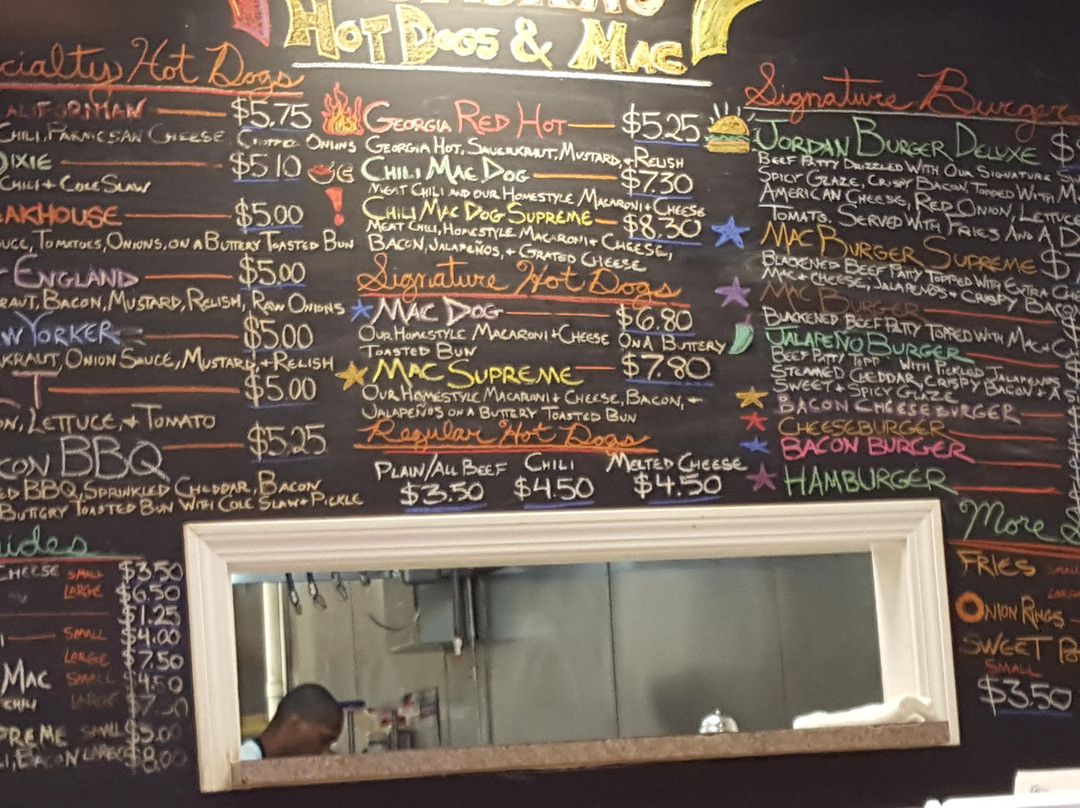 HOT DOGS & MAC
Hot Dogs
$5.75
CHILI, PARMESAN CHEESE, CHOPPED ONIONS
DIXIE $5.10
CHILI + COLE SLAW
$5.00
TOMATOES, ONIONS, ON A BUTTERY TOASTED BUN
ENGLAND $5.00
BACON, MUSTARD, RELISH, RAW ONIONS
YORKER $5.00
ONION SAUCE, MUSTARD, + RELISH
T $5.00
LETTUCE, + TOMATO
BBQ $5.25
BBQ, SPRINKLED CHEDDAR, BACON
BUTTERY TOASTED BUN WITH COLE SLAW + PICKLE
CHEESE SMALL $3.50
LARGE $6.50
$1.25
SMALL $4.00
LARGE $7.50
MAC SMALL
CHILI LARGE
SMALL $5.00
BACON LARGE $8.00
GEORGIA RED HOT $5.25
GEORGIA HOT, SAUERKRAUT, MUSTARD, + RELISH
CHILI MAC DOG $7.30
MEAT CHILI AND OUR HOMESTYLE MACARONI + CHEESE
CHILI MAC DOG SUPREME $8.30
MEAT CHILI, HOMESTYLE MACARONI + CHEESE,
BACON, JALAPEÑOS, + GRATED CHEESE
Signature Hot Dogs
MAC DOG $6.80
OUR HOMESTYLE MACARONI + CHEESE ON A BUTTERY
TOASTED BUN
MAC SUPREME $7.80
OUR HOMESTYLE MACARONI + CHEESE, BACON, +
JALAPEÑOS ON A BUTTERY TOASTED BUN
Regular Hot Dogs
PLAIN/ALL BEEF CHILI MELTED CHEESE
$3.50 $4.50 $4.50
Signature Burgers
JORDAN BURGER DELUXE
BEEF PATTY DRIZZLED WITH OUR SIGNATURE
SPICY GLAZE, CRISPY BACON, TOPPED WITH
AMERICAN CHEESE, RED ONION, LETTUCE
TOMATO. SERVED WITH FRIES AND A
MAC BURGER SUPREME
BLACKENED BEEF PATTY TOPPED WITH EXTRA
MAC + CHEESE, JALAPEÑOS + CRISPY BACON
MAC BURGER
BLACKENED BEEF PATTY TOPPED WITH MAC +
JALAPEÑO BURGER
BEEF PATTY WITH PICKLED JALAPEÑOS
STEAMED CHEDDAR, CRISPY BACON + A
SWEET + SPICY GLAZE
BACON CHEESEBURGER
CHEESEBURGER
BACON BURGER
HAMBURGER
More
FRIES
ONION RINGS
SWEET
SMALL
$3.50